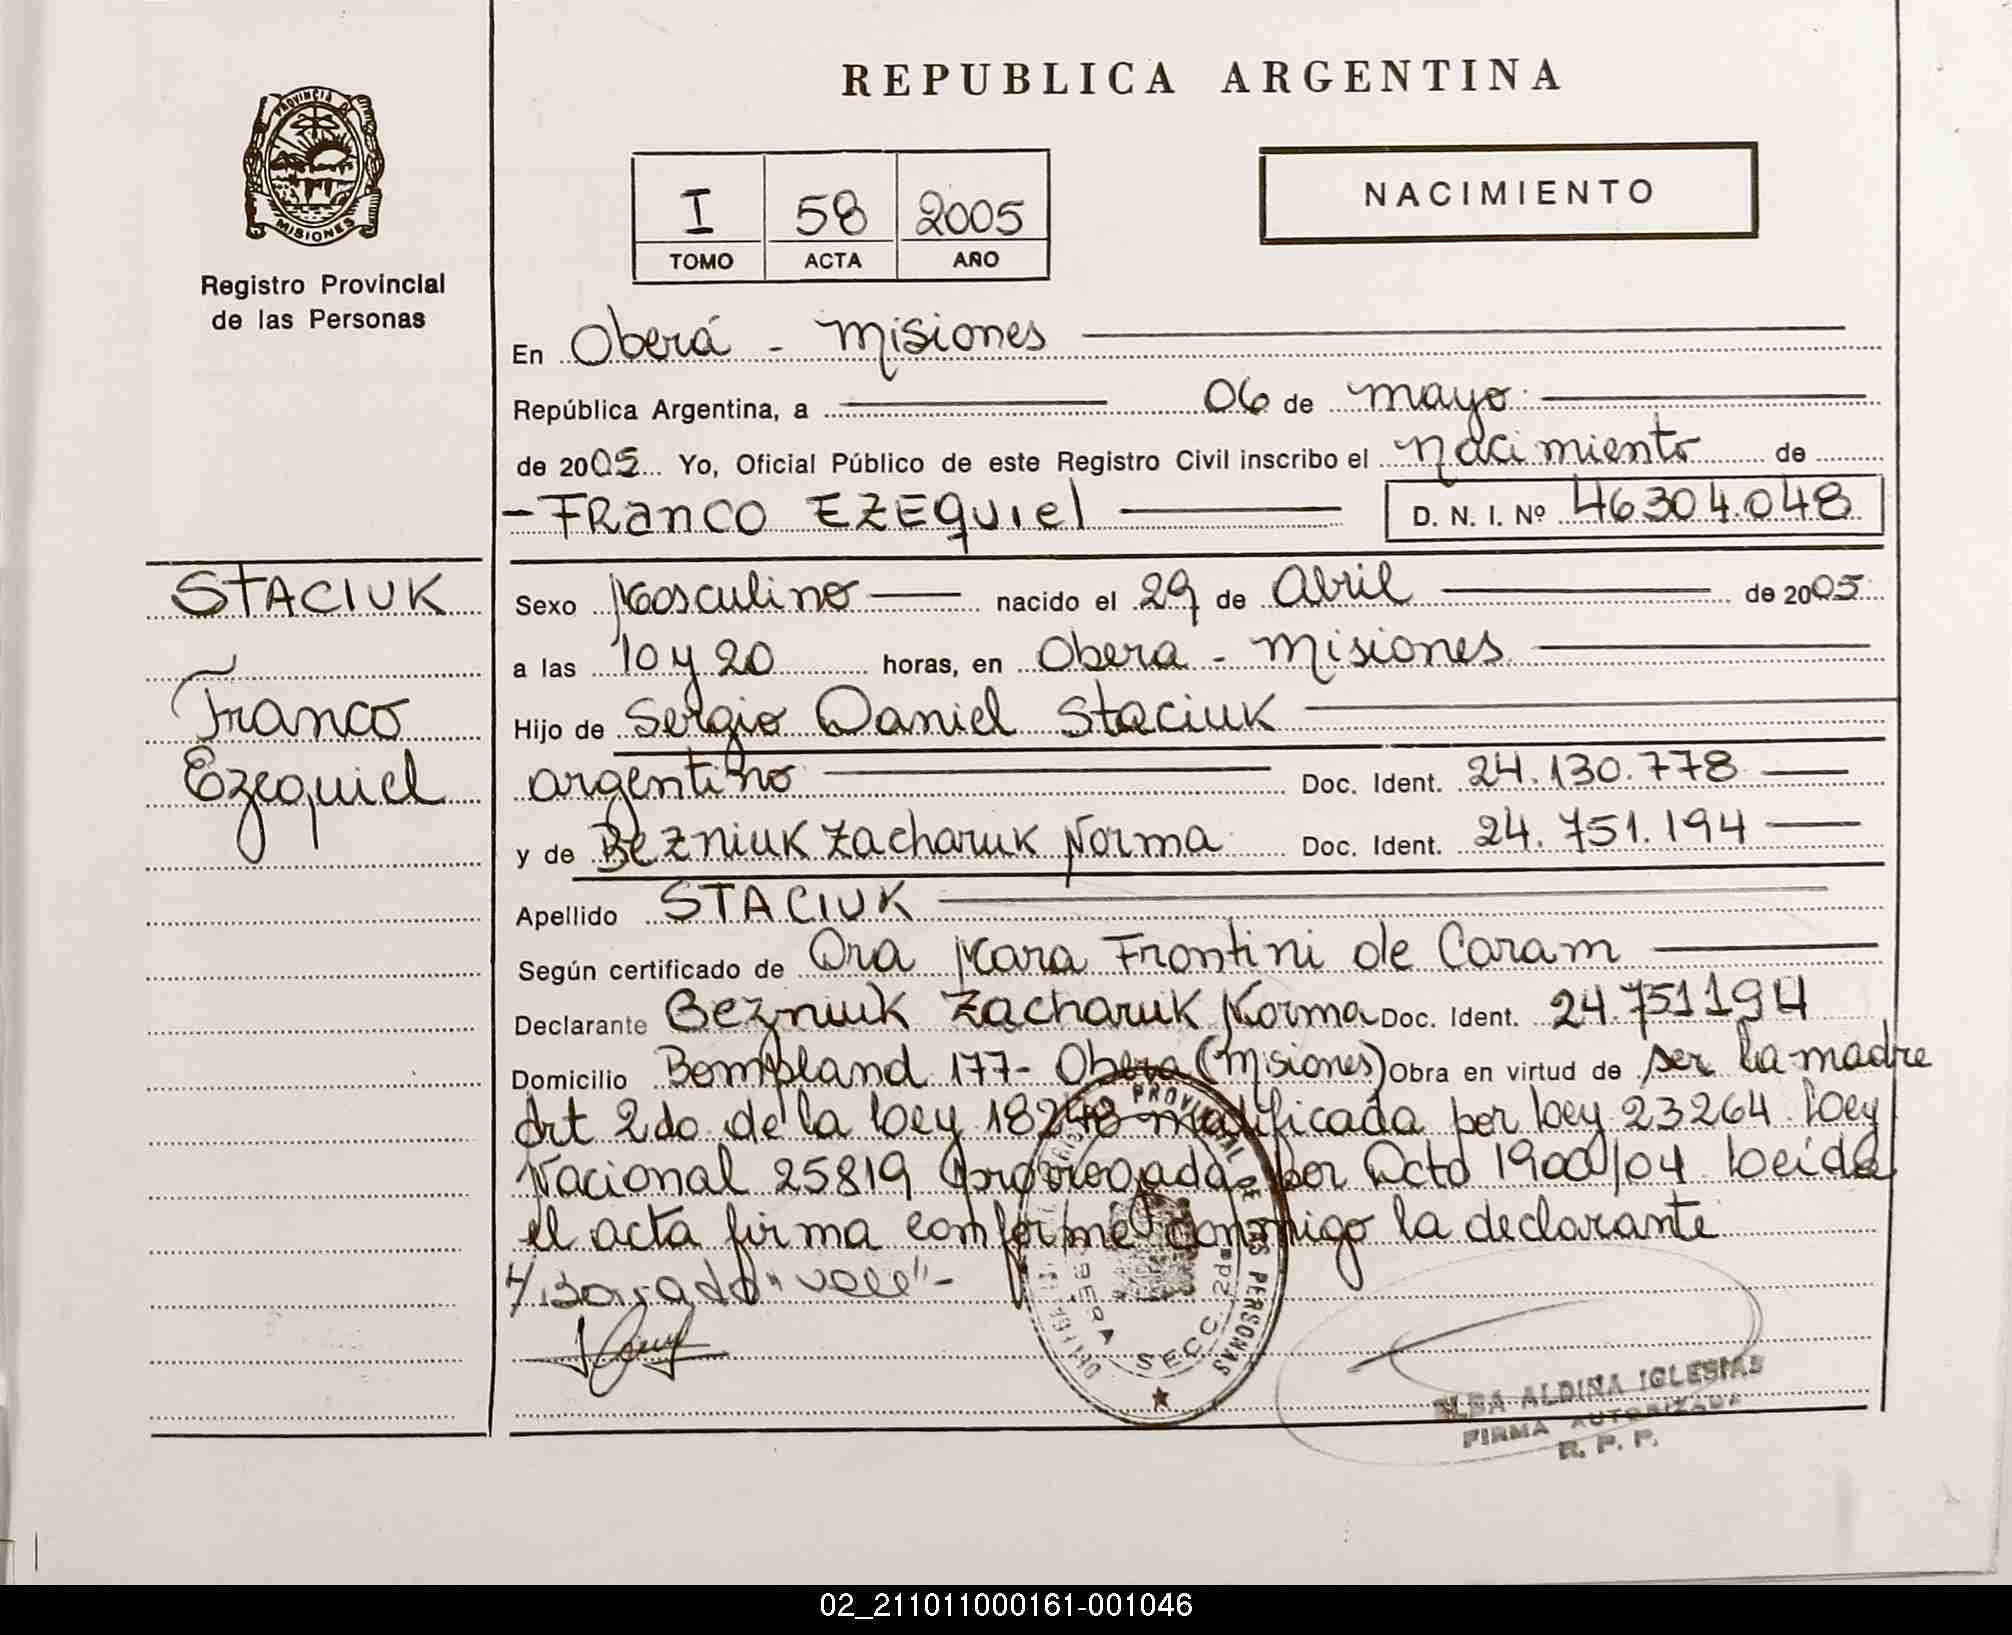 REPUBLICA ARGENTINA
PROVINCIA DE
MISIONES
Registro Provincial
de las Personas
I 58 2005
TOMO ACTA AÑO
NACIMIENTO
En Oberá - Misiones
República Argentina, a 06 de mayo
de 2005 Yo, Oficial Público de este Registro Civil inscribo el nacimiento de
- FRANCO EZEQUIEL D. N. I. Nº 46304.048
STACIUK
Franco
Ezequiel
Sexo Masculino nacido el 29 de Abril de 2005
a las 10 y 20 horas, en Obera - Misiones
Hijo de Sergio Daniel Staciuk
argentino Doc. Ident. 24.130.778
y de Bezniuk Zacharuk Norma Doc. Ident. 24.751.194
Apellido STACIUK
Según certificado de Dra Mara Frontini de Caram
Declarante Bezniuk Zacharuk Norma Doc. Ident. 24.751194
Domicilio Bompland 177- Obera (Misiones) Obra en virtud de ser la madre
Art 2do de la Ley 18248 modificada por Ley 23264 Ley
Nacional 25819 prorrogada por Dcto 1900/04 Leida
el acta firma conforme conmigo la declarante
"vale" -
PROVINCIAL DE LAS PERSONAS
OBERA
SECC. 2da
ELBA ALDINA IGLESIAS
FIRMA AUTORIZADA
R. P. P.
02_211011000161-001046